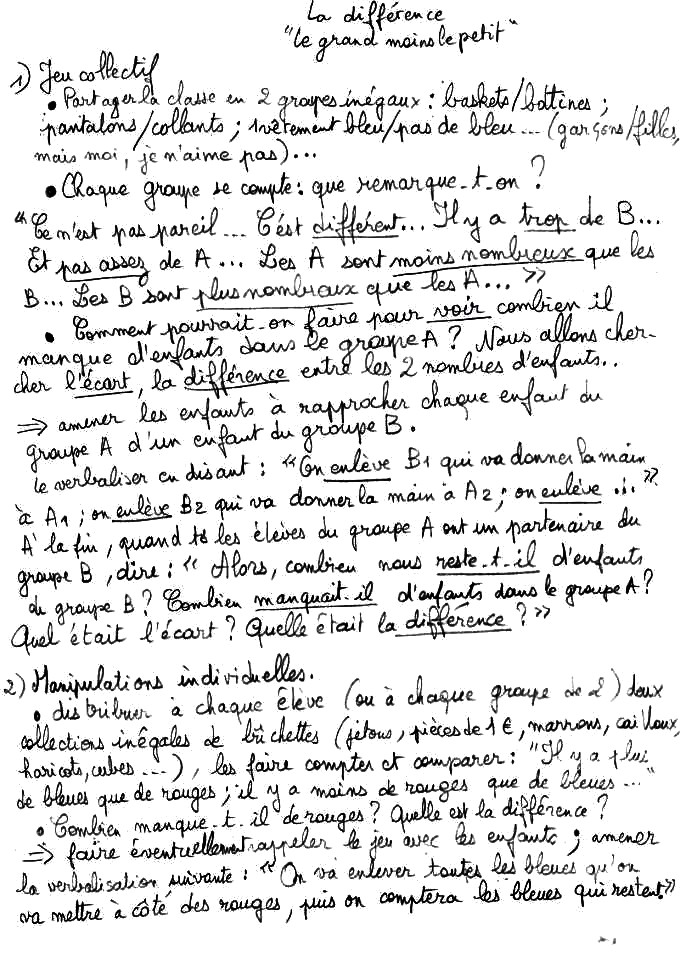 La différence
"le grand moins le petit"
1) Jeu collectif
• Partager la classe en 2 groupes inégaux : baskets/bottines ;
pantalons/collants ; 1 vêtement bleu/pas de bleu ... (garçons/filles,
mais moi, je n'aime pas)...
• Chaque groupe se compte : que remarque-t-on ?
"Ce n'est pas pareil ... C'est différent ... Il y a trop de B...
Et pas assez de A ... Les A sont moins nombreux que les
B... Les B sont plus nombreux que les A... »
• Comment pourrait-on faire pour voir combien il
manque d'enfants dans le groupe A ? Nous allons cher-
cher l'écart, la différence entre les 2 nombres d'enfants..
⇒ amener les enfants à rapprocher chaque enfant du
groupe A d'un enfant du groupe B.
Le verbaliser en disant : "On enlève B1 qui va donner la main
à A1 ; on enlève B2 qui va donner la main à A2 ; on enlève ... »
A la fin, quand ts les élèves du groupe A ont un partenaire du
groupe B, dire : "Alors, combien nous reste-t-il d'enfants
du groupe B ? Combien manquait-il d'enfants dans le groupe A ?
Quel était l'écart ? Quelle était la différence ? »
2) Manipulations individuelles.
• distribuer à chaque élève (ou à chaque groupe de 2) deux
collections inégales de bûchettes (jetons, pièces de 1 €, marrons, cailloux,
haricots, cubes ...), les faire compter et comparer : "Il y a plus
de bleues que de rouges ; il y a moins de rouges que de bleues ..."
• Combien manque-t-il de rouges ? Quelle est la différence ?
⇒ faire éventuellement rappeler le jeu avec les enfants ; amener
la verbalisation suivante : "On va enlever toutes les bleues qu'on
va mettre à côté des rouges, puis on comptera les bleues qui restent »